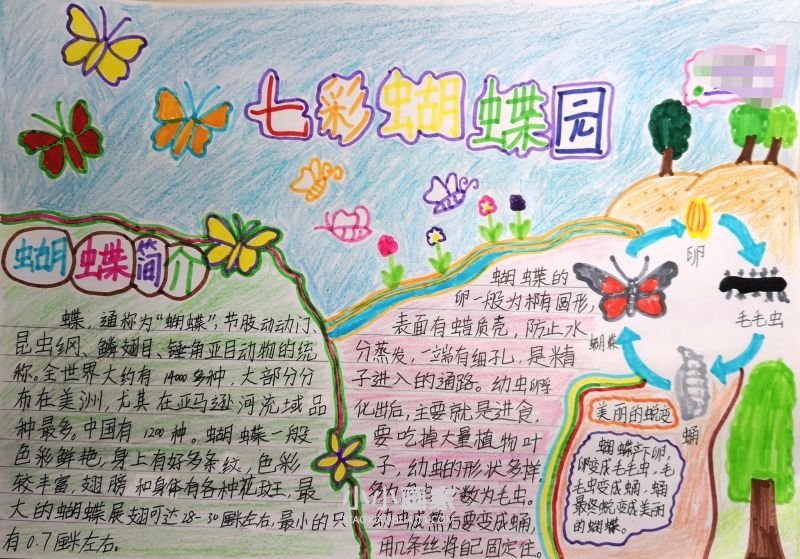 七彩蝴蝶园
蝴蝶简介
蝶，通称为“蝴蝶”，节肢动动门、
昆虫纲、鳞翅目、锤角亚目动物的统
称。全世界大约有14000多种，大部分分
布在美洲，尤其在亚马逊河流域品
种最多。中国有1200种。蝴蝶一般
色彩鲜艳，身上有好多条纹，色彩
较丰富，翅膀和身体有各种花斑，最
大的蝴蝶展翅可达28-30厘米左右，最小的只
有0.7厘米左右。
蝴蝶的
卵一般为椭圆形，
表面有蜡质壳，防止水
分蒸发，一端有细孔，是精
子进入的通路。幼虫孵
化出后，主要就是进食，
要吃掉大量植物叶
子，幼虫的形状多样，
多数为毛虫。
幼虫成熟后要变成蛹，
用几条丝将自己固定住。
卵
毛毛虫
蛹
蝴蝶
美丽的蜕变
蝴蝶产卵，
卵变成毛毛虫，毛
毛虫变成蛹，蛹
最终蜕变成美丽
的蝴蝶。